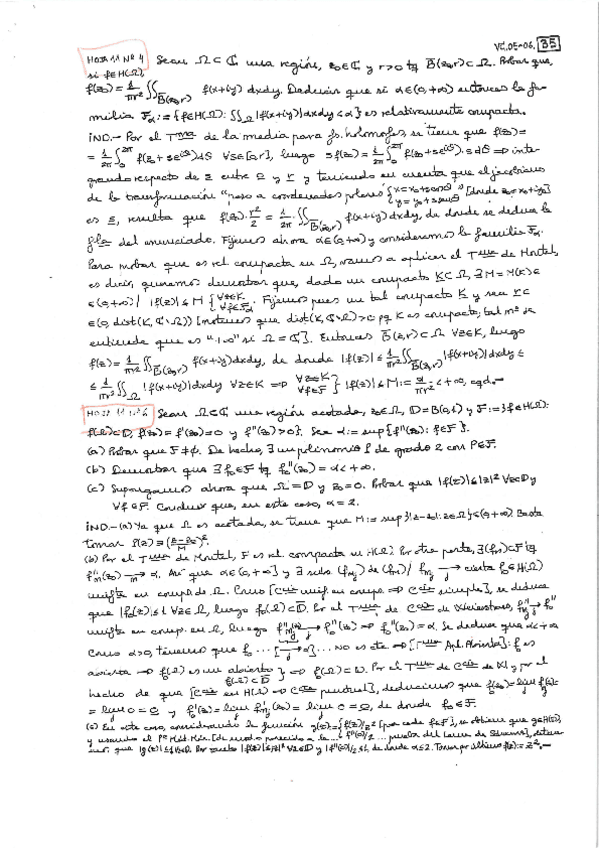 VC.05-06. 35
HOJA 11 Nº 4 Sean Ω⊂ℂ una región, z₀∈ℂ y r>0 tq B̄(z₀,r)⊂Ω. Probar que,
si f∈H(Ω),
f(z₀) = 1/πr² ∬_B̄(z₀,r) f(x+iy) dxdy. Deducir que si α∈(0,+∞) entonces la fa-
milia F_α := {f∈H(Ω): ∬_Ω |f(x+iy)|dxdy ≤ α} es relativamente compacta.
IND.- Por el Tma de la media para fs. holomorfas, se tiene que f(z₀) =
= 1/2π ∫₀^2π f(z₀+se^iθ)dθ ∀s∈[0,r], luego sf(z₀) = 1/2π ∫₀^2π f(z₀+se^iθ)·s dθ ⇒ inte-
grando respecto de s entre 0 y r y teniendo en cuenta que el jacobiano
de la transformación "paso a coordenadas polares" {x=x₀+s cosθ, y=y₀+s senθ [donde z₀=x₀+iy₀]
es s, resulta que f(z₀)·r²/2 = 1/2π ∬_B̄(z₀,r) f(x+iy)dxdy, de donde se deduce la
fla del enunciado. Fijemos ahora α∈(0,+∞) y consideremos la familia F_α.
Para probar que es rel. compacta en Ω, vamos a aplicar el Tma de Montel,
es decir, queremos demostrar que, dado un compacto K⊂Ω, ∃M=M(K)∈
∈(0,+∞) / |f(z)|≤M {∀z∈K, ∀f∈F_α. Fijemos pues un tal compacto K y sea r∈
∈(0, dist(K,ℂ∖Ω)) [notemos que dist(K,ℂ∖Ω)>0 pq K es compacto; tal nº se
entiende que es "1" si Ω=ℂ]. Entonces B̄(z,r)⊂Ω ∀z∈K, luego
f(z) = 1/πr² ∬_B̄(z,r) f(x+iy)dxdy, de donde |f(z)| ≤ 1/πr² ∬_B̄(z,r) |f(x+iy)|dxdy ≤
≤ 1/πr² ∬_Ω |f(x+iy)|dxdy ∀z∈K ⇒ ∀z∈K, ∀f∈F} |f(z)| ≤ M := α/πr² < +∞, cqd.-
HOJA 11 Nº 6 Sean Ω⊂ℂ una región acotada, z₀∈Ω, D=B(0,1) y F:={f∈H(Ω):
f(Ω)⊂D, f(z₀)=f'(z₀)=0 y f''(z₀)>0}. Sea α:=sup{f''(z₀): f∈F}.
(a) Probar que F≠∅. De hecho, ∃ un polinomio P de grado 2 con P∈F.
(b) Demostrar que ∃f₀∈F tq f₀''(z₀)=α<+∞.
(c) Supongamos ahora que Ω=D y z₀=0. Probar que |f(z)|≤|z|² ∀z∈D y
∀f∈F. Concluir que, en este caso, α=2.
IND.- (a) Ya que Ω es acotada, se tiene que M:=sup{|z-z₀|: z∈Ω}∈(0,+∞). Basta
tomar P(z)=((z-z₀)/M)².
(b) Por el Tma de Montel, F es rel. compacta en H(Ω). Por otra parte, ∃(fₙ)⊂F tq
fₙ''(z₀)→α. Así que α∈(0,+∞] y ∃ subs. (fₙⱼ) de (fₙ) / fₙⱼ → cierta f₀∈H(Ω)
unifte en comp. de Ω. Como se deduce
que |f₀(z)|≤1 ∀z∈Ω, luego f₀(Ω)⊂D̄. Por el Tma de Cia de Weierstrass, fₙⱼ''→f₀''
unifte en comp. en Ω, luego fₙⱼ''(z₀)→f₀''(z₀) ⇒ f₀''(z₀)=α. Se deduce que α<+∞
Como α>0, tenemos que f₀ NO es cte ⇒ [Tma Apl. Abierta]: f es
abierta ⇒ f(Ω) es un abierto ⇒ f₀(Ω)⊂D. Por el Tma de Cia de W y por el
hecho de que [Cia en H(Ω) ⇒ Cia puntual], deducimos que f₀(z₀)=lim
= lim 0 = 0 y f₀'(z₀)=lim fₙⱼ'(z₀)=lim 0=0, de donde f₀∈F.
(c) En este caso, considerando la función g(z):={f(z)/z² [para cada f∈F], se obtiene que g∈H(D),
y usando el Pº Mód. Máx. [de modo parecido a la prueba del Lema de Schwarz],
que |g(z)|≤1 ∀z∈D. Por tanto |f(z)|≤|z|² ∀z∈D y |f''(0)|/2≤1, de donde α≤2. Tomar por último f(z):=z².-